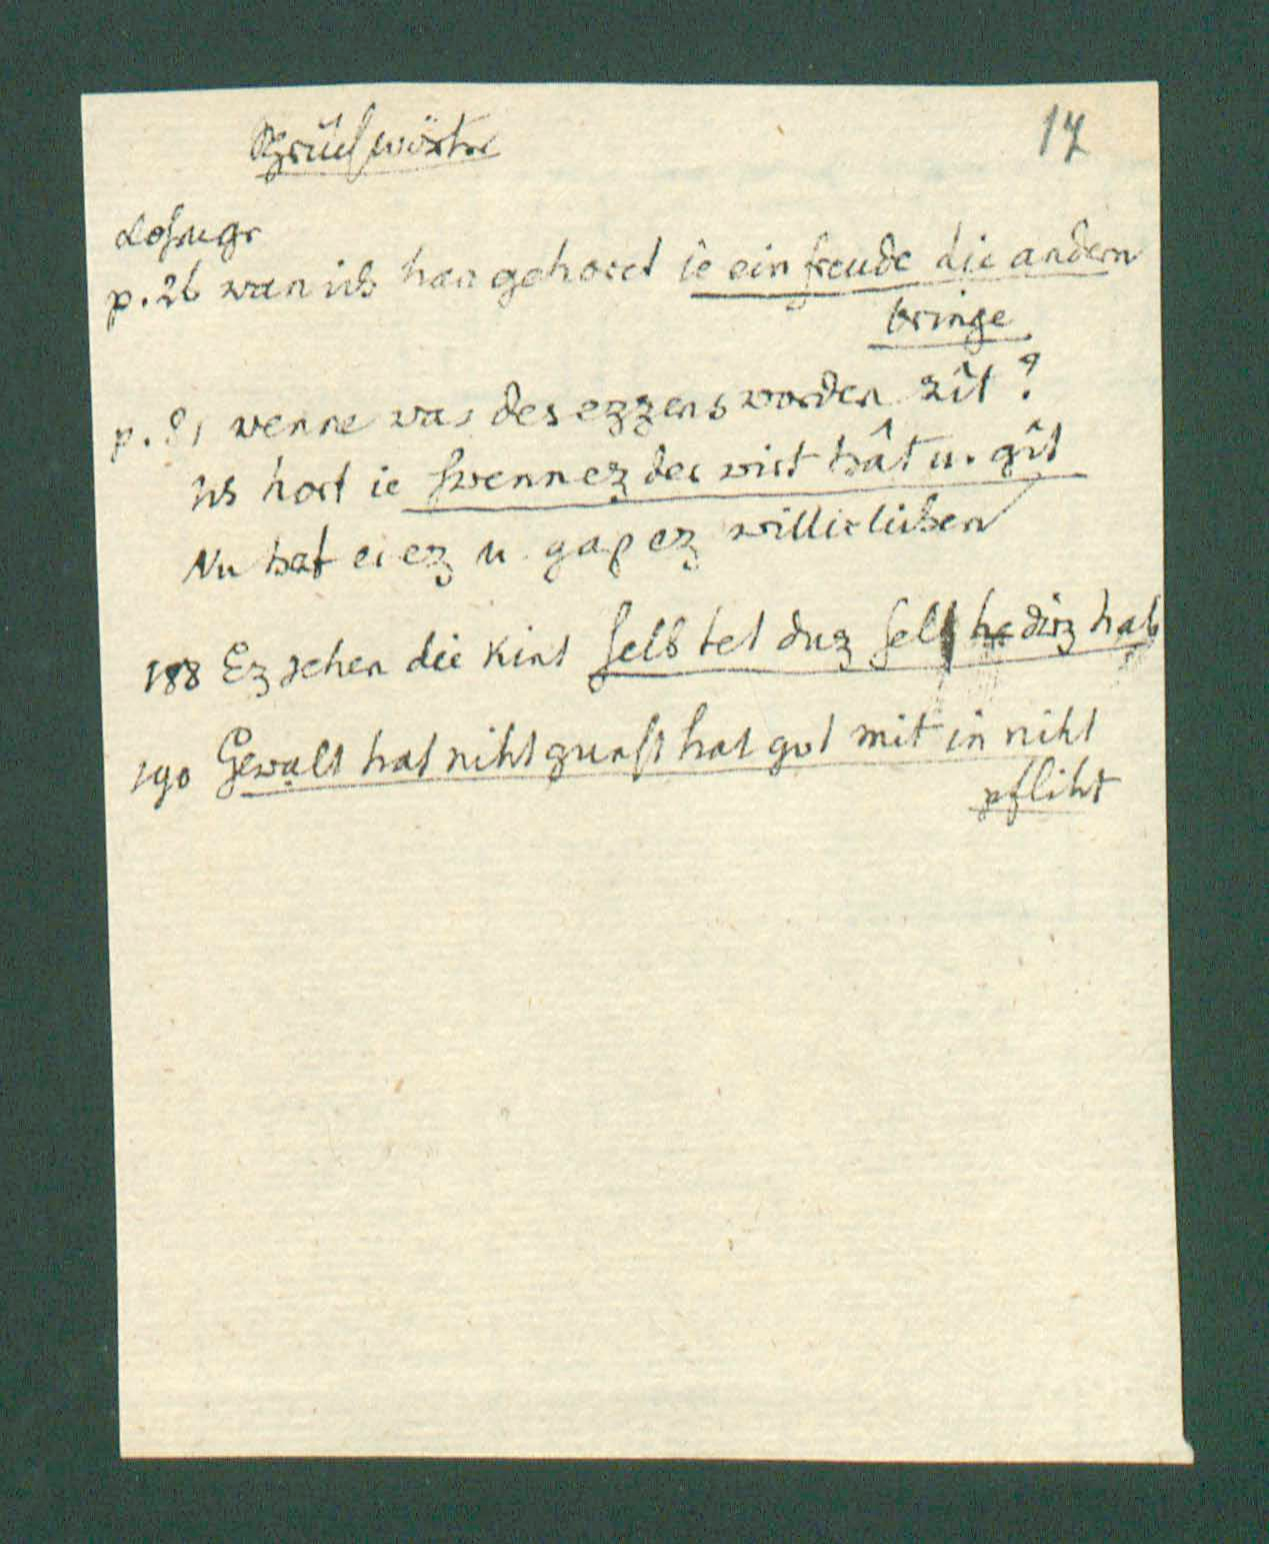 Sprüchwörter
17
Lohengr
p. 26 wan ich han gehoret ie ein freude die andern
bringe
p. 81 wenne was des ezzens worden zît?
Ich hort ie swenn ez der wirt hât u. gît
Nu hat er ez u. gap ez williclichen
188 Ez jehen die kint selb tet duz selb he dirz hab
190 Gewalt hat niht gunst hat got mit in niht
pfliht